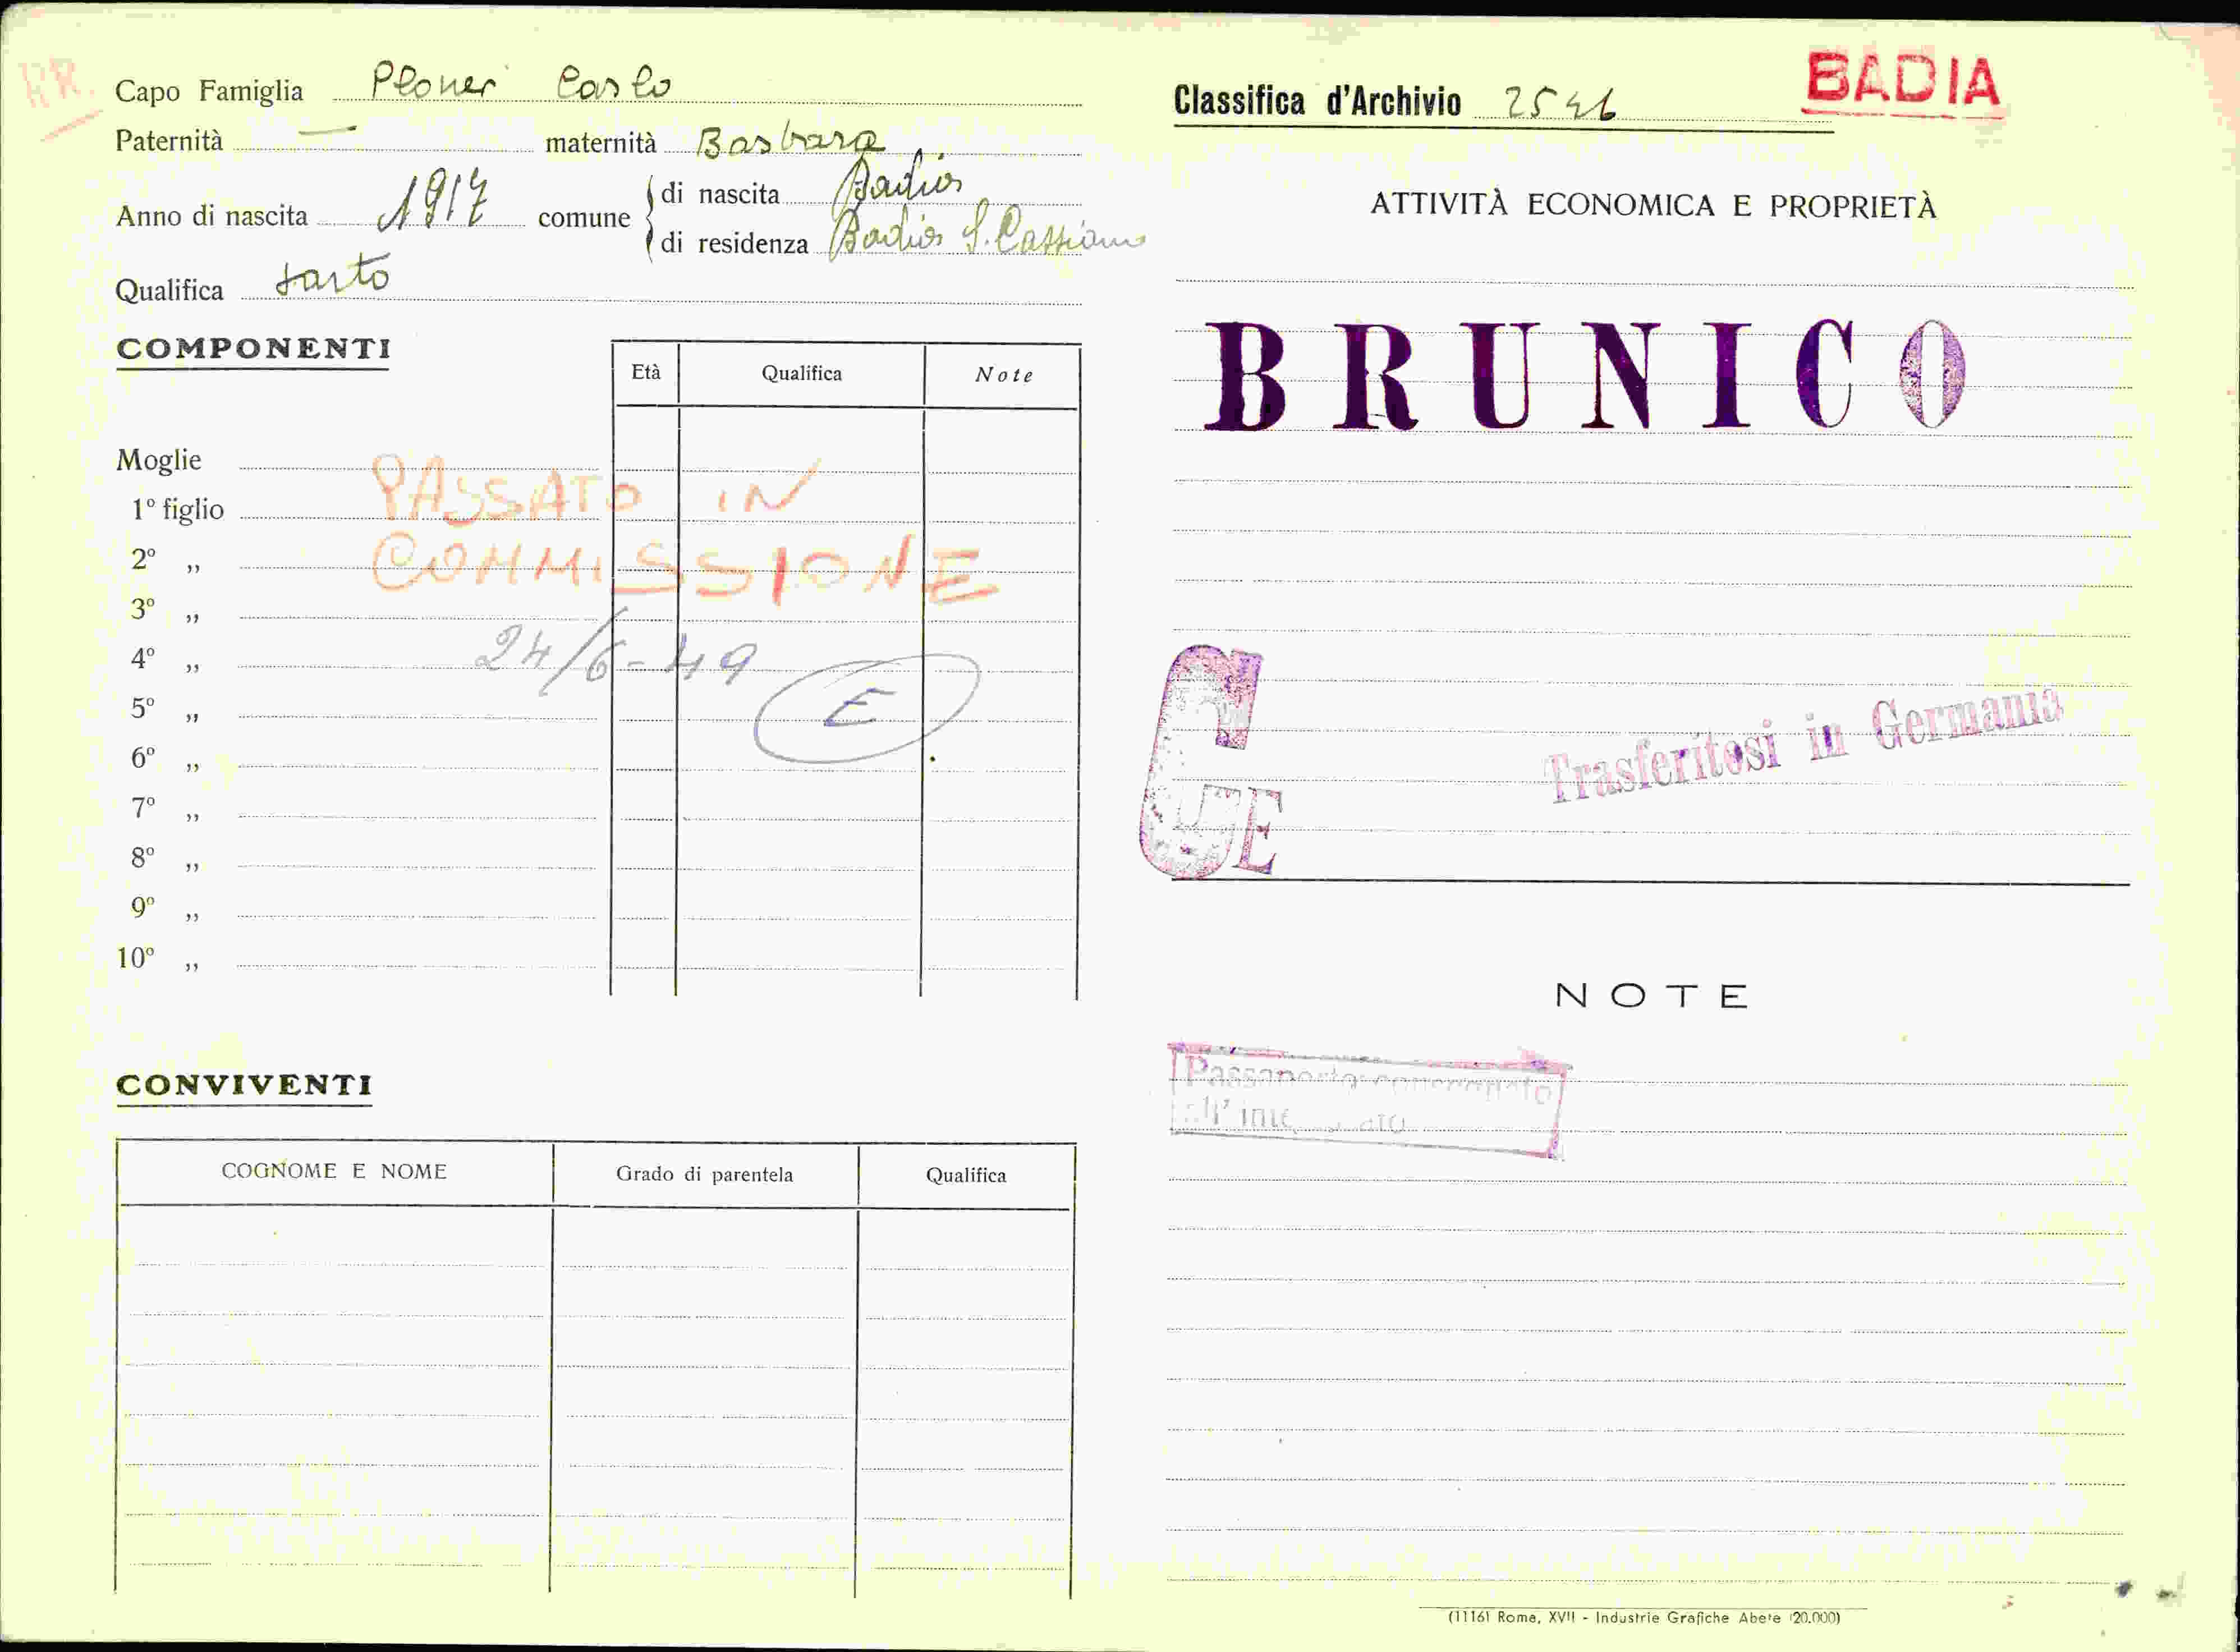 Capo Famiglia Ploner Carlo
Paternità — maternità Barbara
Anno di nascita 1917 comune di nascita Badia
di residenza Badia S. Cassiano
Qualifica sarto
COMPONENTI
Età Qualifica Note
Moglie
1º figlio
2º „
3º „
4º „
5º „
6º „
7º „
8º „
9º „
10º „
PASSATO IN
COMMISSIONE
24/6-49
E
CONVIVENTI
COGNOME E NOME Grado di parentela Qualifica
Classifica d'Archivio 2546
BADIA
ATTIVITÀ ECONOMICA E PROPRIETÀ
BRUNICO
Trasferitosi in Germania
E
NOTE
Passaporto consegnato
all'interessato
(1116) Roma, XVII - Industrie Grafiche Abete (20.000)